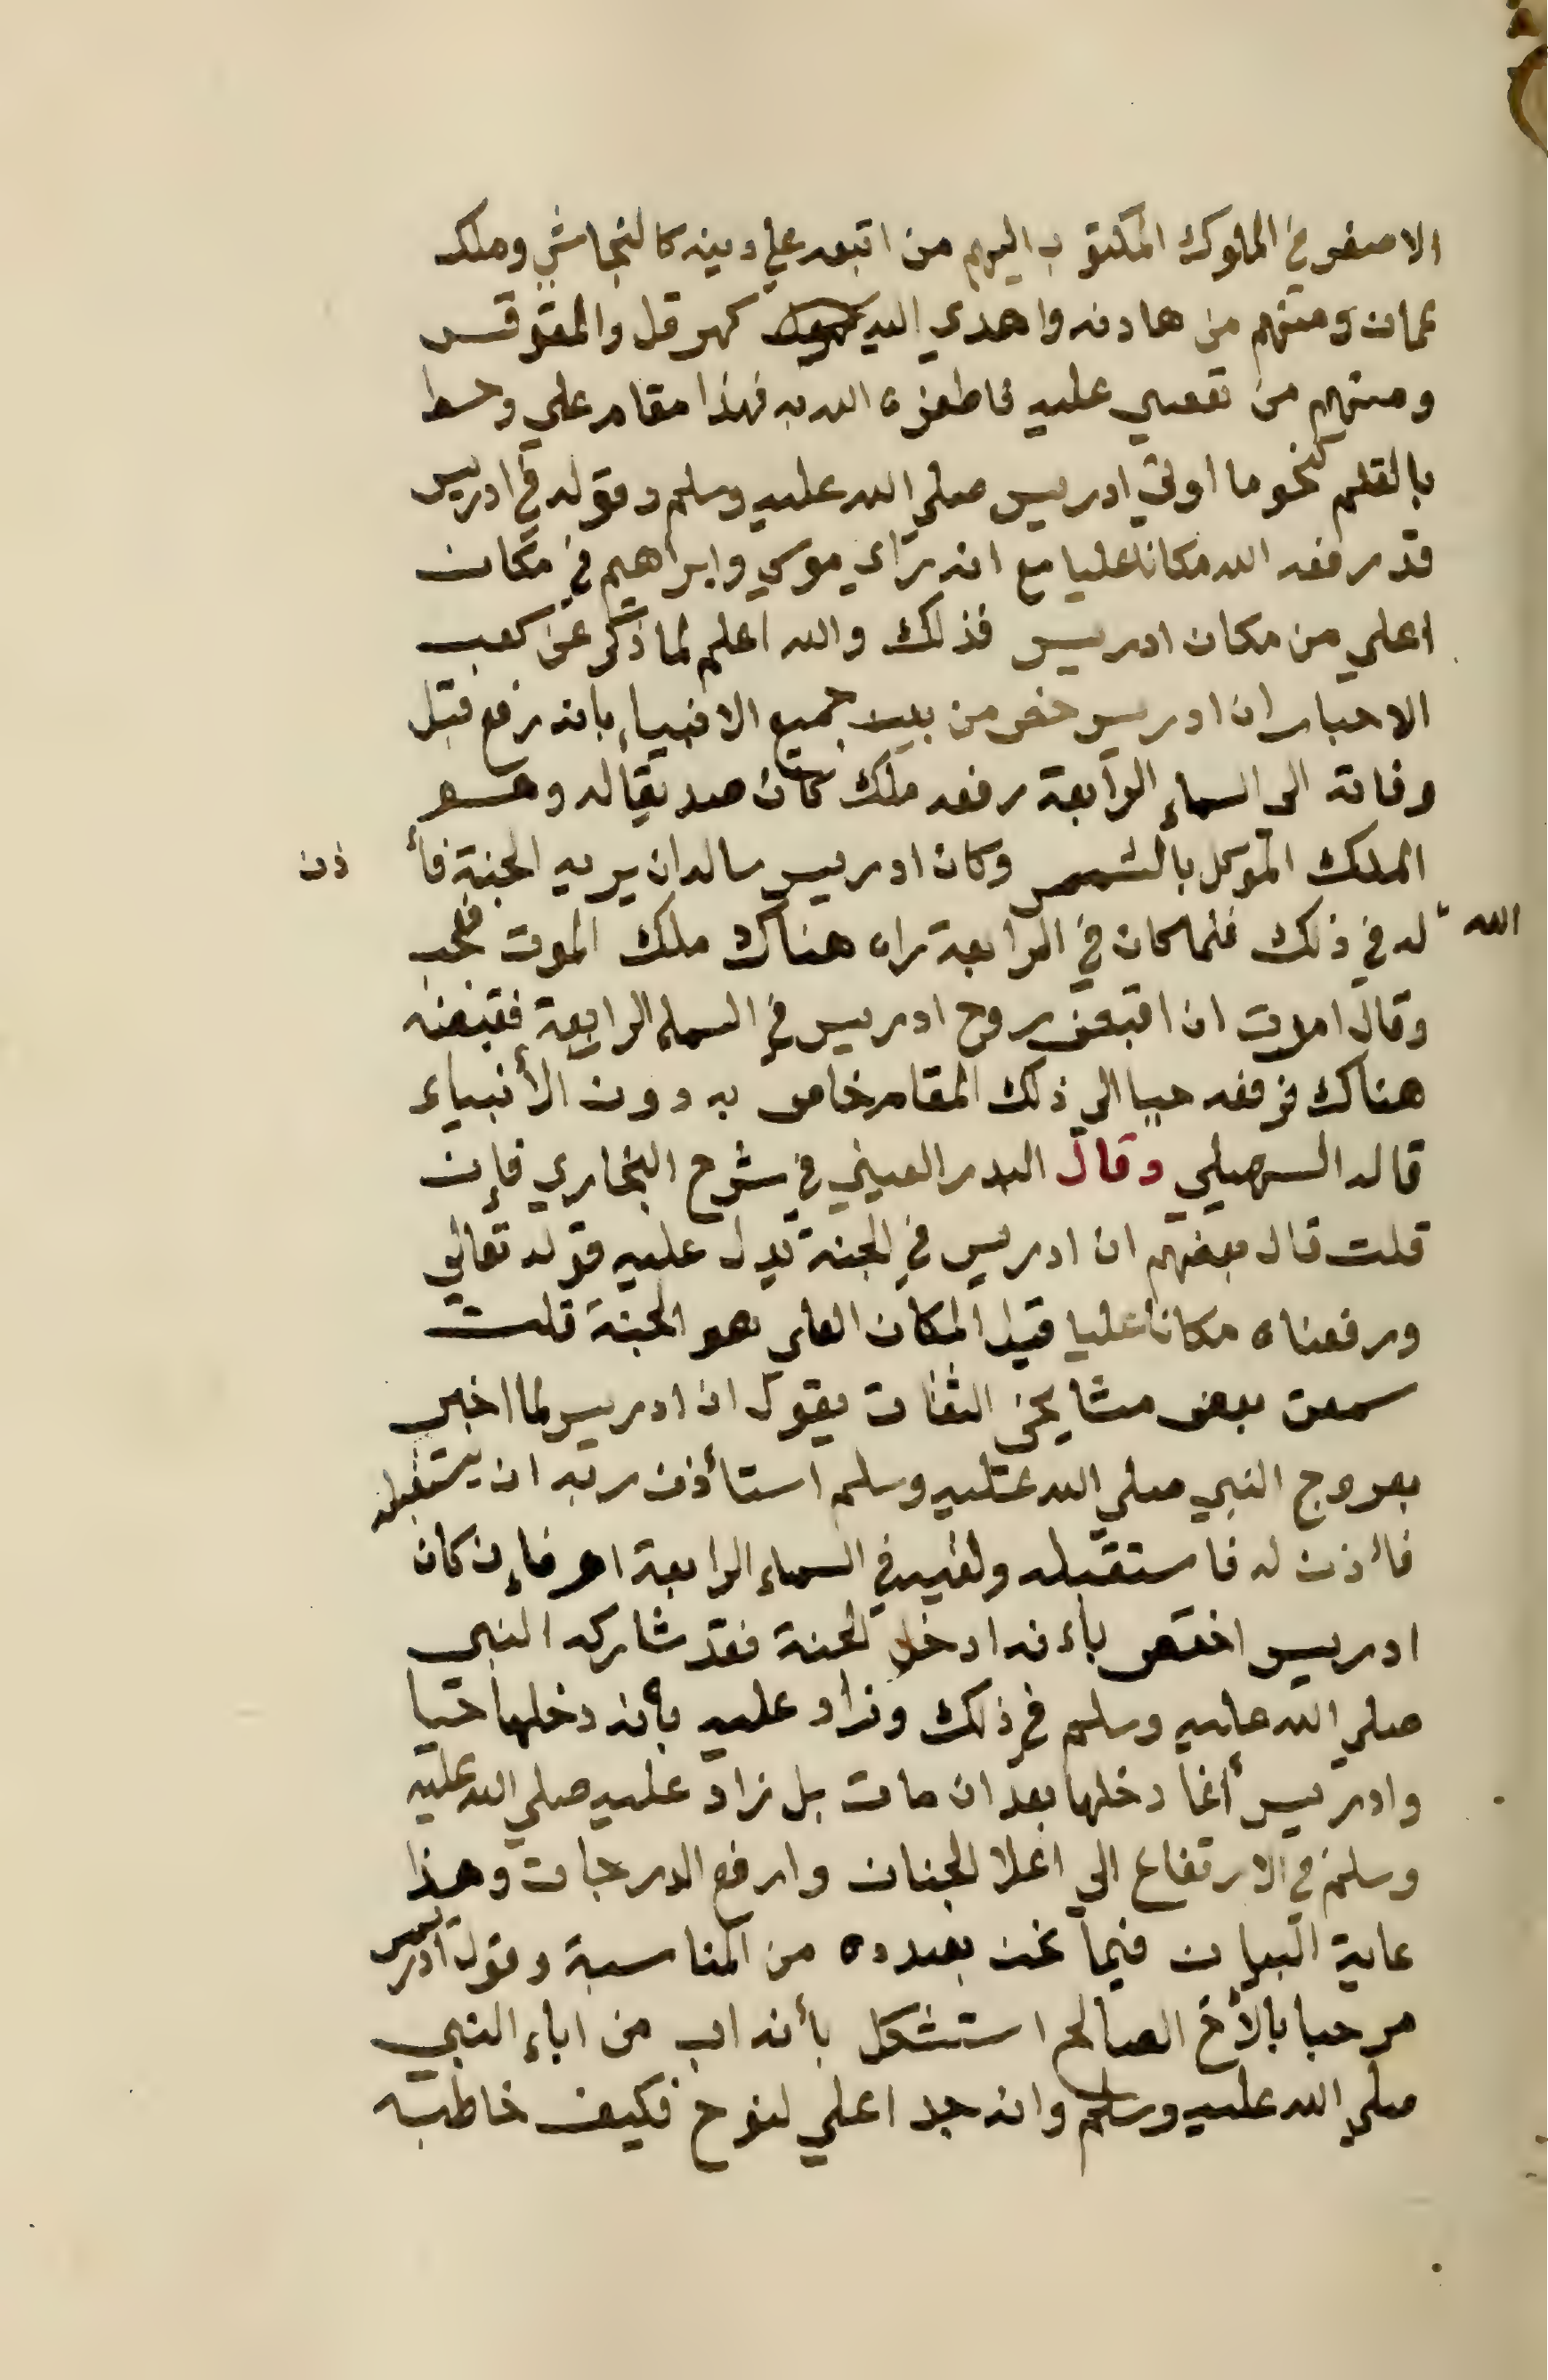 الاصفر في الملوك المكتوب اليهم من اتبعه على دينه كالنجاشي وملك
عمان ومنهم من هادنه واهدي اليه كهرقل والمقوقس
ومنهم من تعصي عليه فاظفره الله به فهذا مقام علي وخط
بالقلم كنحو ما اوتي ادريس صلي الله عليه وسلم وقوله في ادريس
قد رفعه الله مكانا عليا مع انه رأي موسي وابراهيم في مكان
اعلي من مكان ادريس فذلك والله اعلم لما ذكر عن كعب
الاحبار ان ادريس خص من بين جميع الانبياء بانه رفع قبل
وفاته الى السماء الرابعة رفعه ملك كان صديقا له وهو
الملك الموكل بالشمس وكان ادريس ساله ان يريه الجنة فأذن
الله له في ذلك فلما كان في الرابعة راه هناك ملك الموت فعجب
وقال امرت ان اقبض روح ادريس في السماء الرابعة فقبضه
هناك فرفعه حيا الى ذلك المقام خاص به دون الأنبياء
قاله السهيلي وقال البدر العيني في شرح البخاري فإن
قلت قال بعضهم ان ادريس في الجنة يدل عليه قوله تعالي
ورفعناه مكانا عليا قيل المكان العلي هو الجنة قلت
سمعت بعض مشايخي الثقات يقول ان ادريس لما اخبر
بعروج النبي صلي الله عليه وسلم استأذن ربه ان يستقبله
فأذن له فاستقبله ولقيه في السماء الرابعة اهـ فإن كان
ادريس اختص بأنه ادخل الجنة فقد شاركه النبي
صلي الله عليه وسلم في ذلك وزاد عليه بأنه دخلها حيا
وادريس أنما دخلها بعد ان مات بل زاد عليه صلي الله عليه
وسلم في الارتفاع الى اعلا الجنان وارفع الدرجات وهذا
غاية البيان فيما نحن بصدده من المناسبة وقول ادريس
مرحبا بالأخ الصالح استشكل بأنه اب من اباء النبي
صلي الله عليه وسلم وانه جد اعلي لنوح فكيف خاطبه